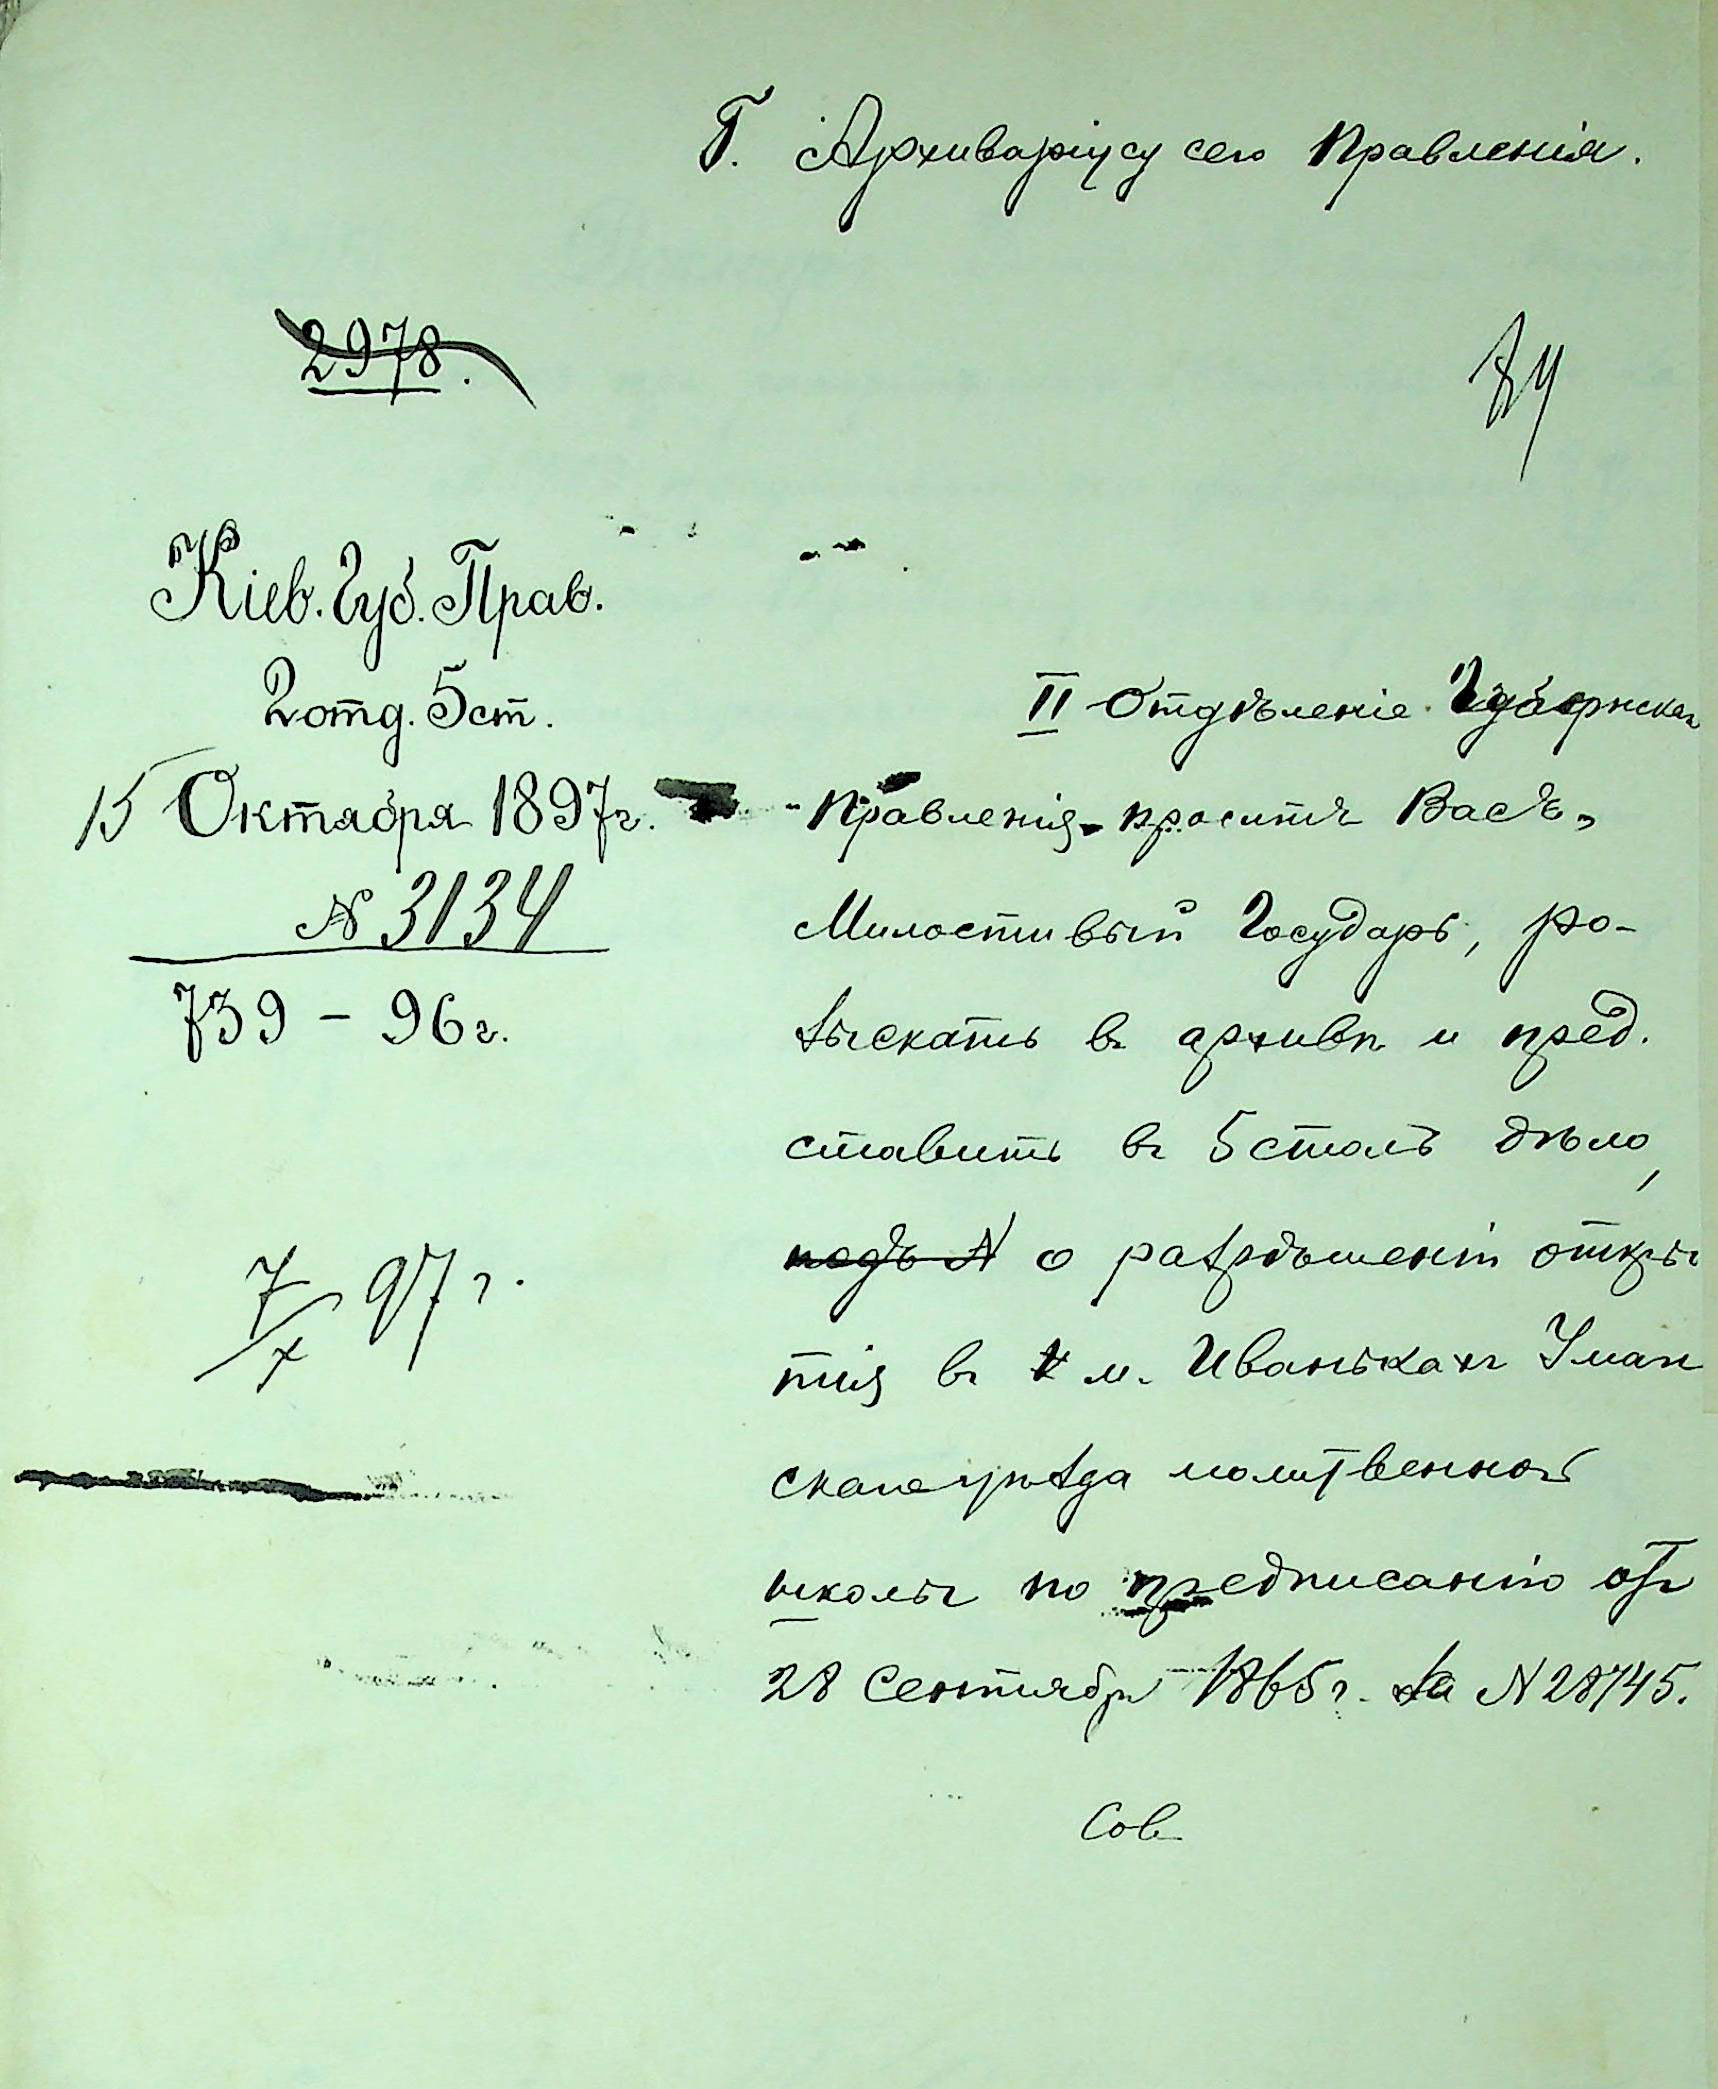 Г. Архиваріусу сего Правленія.
2978.
Кіев. Губ. Прав.
2 отд. 5 ст.
15 Октября 1897 г.
№ 3134
739 – 96 г.
7/X 97 г.
II Отдѣленіе Губернскаго
Правленія проситъ Васъ,
Милостивый Государь, ро-
зыскать въ архивѣ и пред.
ставить въ 5 столъ дѣло,
подъ № о разрѣшеніи откры
тія въ м. Иванькахъ Уман
скаго уѣзда молитвенной
школы по предписанію отъ
28 Сентября 1865 г. за № 28745.
Сов